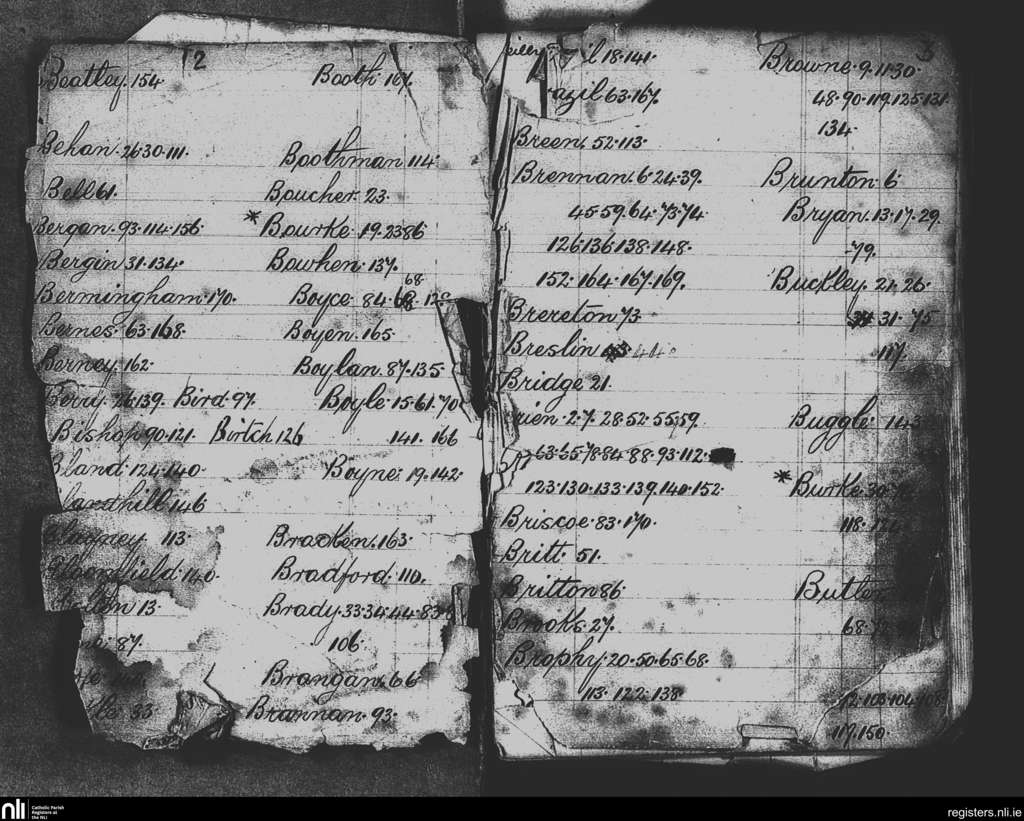 2
Beatley. 154
Behan. 26·30·111.
Bell 61.
Bergan. 93·114·156
Bergin 31·134·
Bermingham·170.
Bernes· 63·168·
Berney. 162·
Berry. 26·139. Bird·97.
Bishop 90·121. Birtch 126
Bland 124·140·
146
113·
140·
13·
87.
33·
Booth 167.
Boothman. 114·
Boucher. 23·
* Bourke. 19·23·86
Bowhen. 137.
68·
Boyce. 84·
Boyen. 165·
Boylan. 87·135·
Boyle· 15·61·70
141· 166
Boyne. 19·142·
Bracken. 163·
Bradford. 110.
Brady. 33·34·44·83·
106·
Brangan. 66·
Brannan. 93·
3
18·141·
63·167.
Breen. 52·113·
Brennan. 6·24·39.
45·59·64·73·74·
126·136·138·148·
152· 164·167·169.
Brereton 73·
Breslin 44·
Bridge 21.
rien· 2·7. 28·52·55·59.
63·65·78·84·88·93·112·
123·130·133·139·140·152·
Briscoe· 83·170.
Britt· 51.
Britton 86·
Brooks. 27.
Brophy. 20·50·65·68·
113· 122·138·
Browne· 9·11·30·
48·90·119·125·131·
134·
Brunton· 6·
Bryan. 13·17·29.
79.
Buckley. 21·26·
31· 75
117.
Buggle· 143
* Burke
118·
Butler
68·
103·104·108·
117.150·
nli
Catholic Parish
Registers at
the NLI
registers.nli.ie